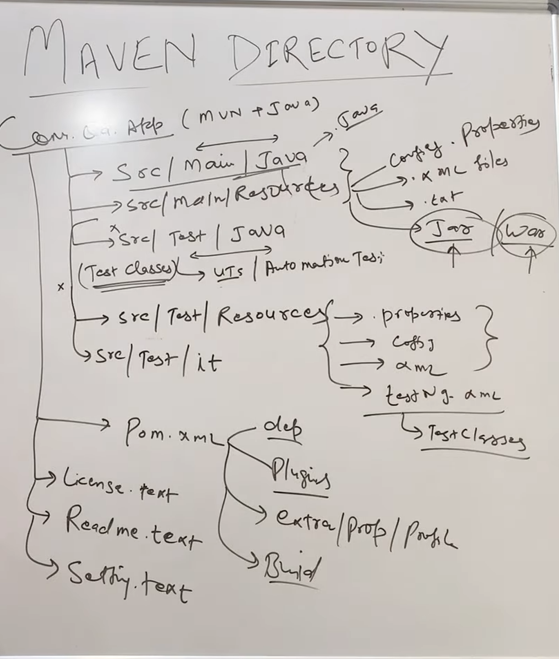 MAVEN DIRECTORY
Com.Qa.App (MVN + Java)
Src/Main/Java
.Java
Src/Main/Resources
config.Properties
.xml files
.txt
Jar / War
Src/Test/JAVA
(Test classes)
UTs / Automation Tes
Src/Test/Resources
.properties
xml
testNg.xml
Test Classes
Src/Test/it
Pom.xml
dep
Plugins
extra/Prop/Profile
Build
License.text
Readme.text
Setting.text